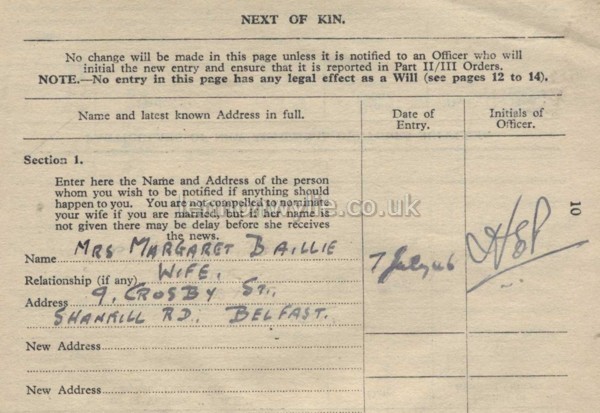 NEXT OF KIN.
No change will be made in this page unless it is notified to an Officer who will
initial the new entry and ensure that it is reported in Part II/III Orders.
NOTE.—No entry in this page has any legal effect as a Will (see pages 12 to 14).
Name and latest known Address in full.
Date of
Entry.
Initials of
Officer.
Section 1.
Enter here the Name and Address of the person
whom you wish to be notified if anything should
happen to you. You are not compelled to nominate
your wife if you are married, but if her name is
not given there may be delay before she receives
the news.
Name MRS MARGARET BAILLIE
Relationship (if any) WIFE.
Address 9, CROSBY ST.,
SHANKILL RD. BELFAST.
7 July 46
New Address
New Address
10